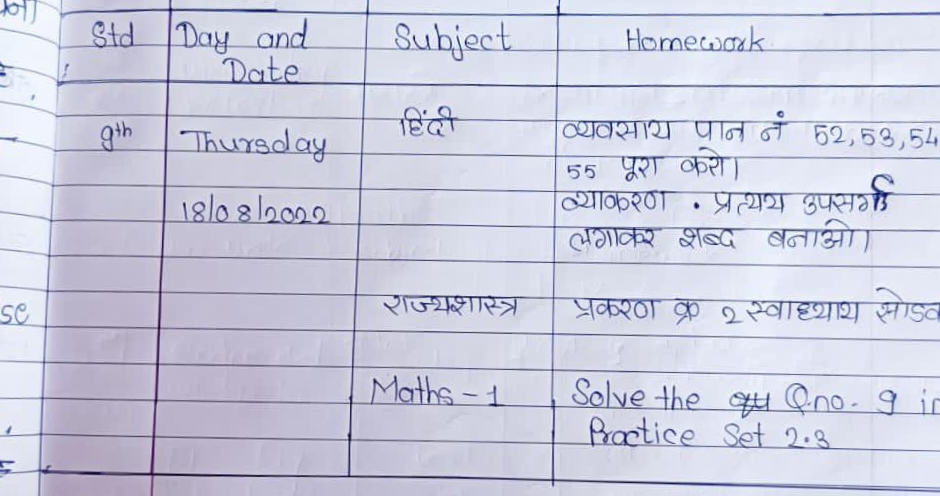 Std Day and Date Subject Homework
9th Thursday हिंदी व्यवसाय पान नं 52,53,54
55 पूरा करो।
18/08/2022 व्याकरण . प्रत्यय उपसर्ग
लगाकर शब्द बनाओ।
राज्यशास्त्र प्रकरण क्र २ स्वाध्याय सोडव
Maths-1 Solve the Q.no. 9 in
Practice Set 2.3
se